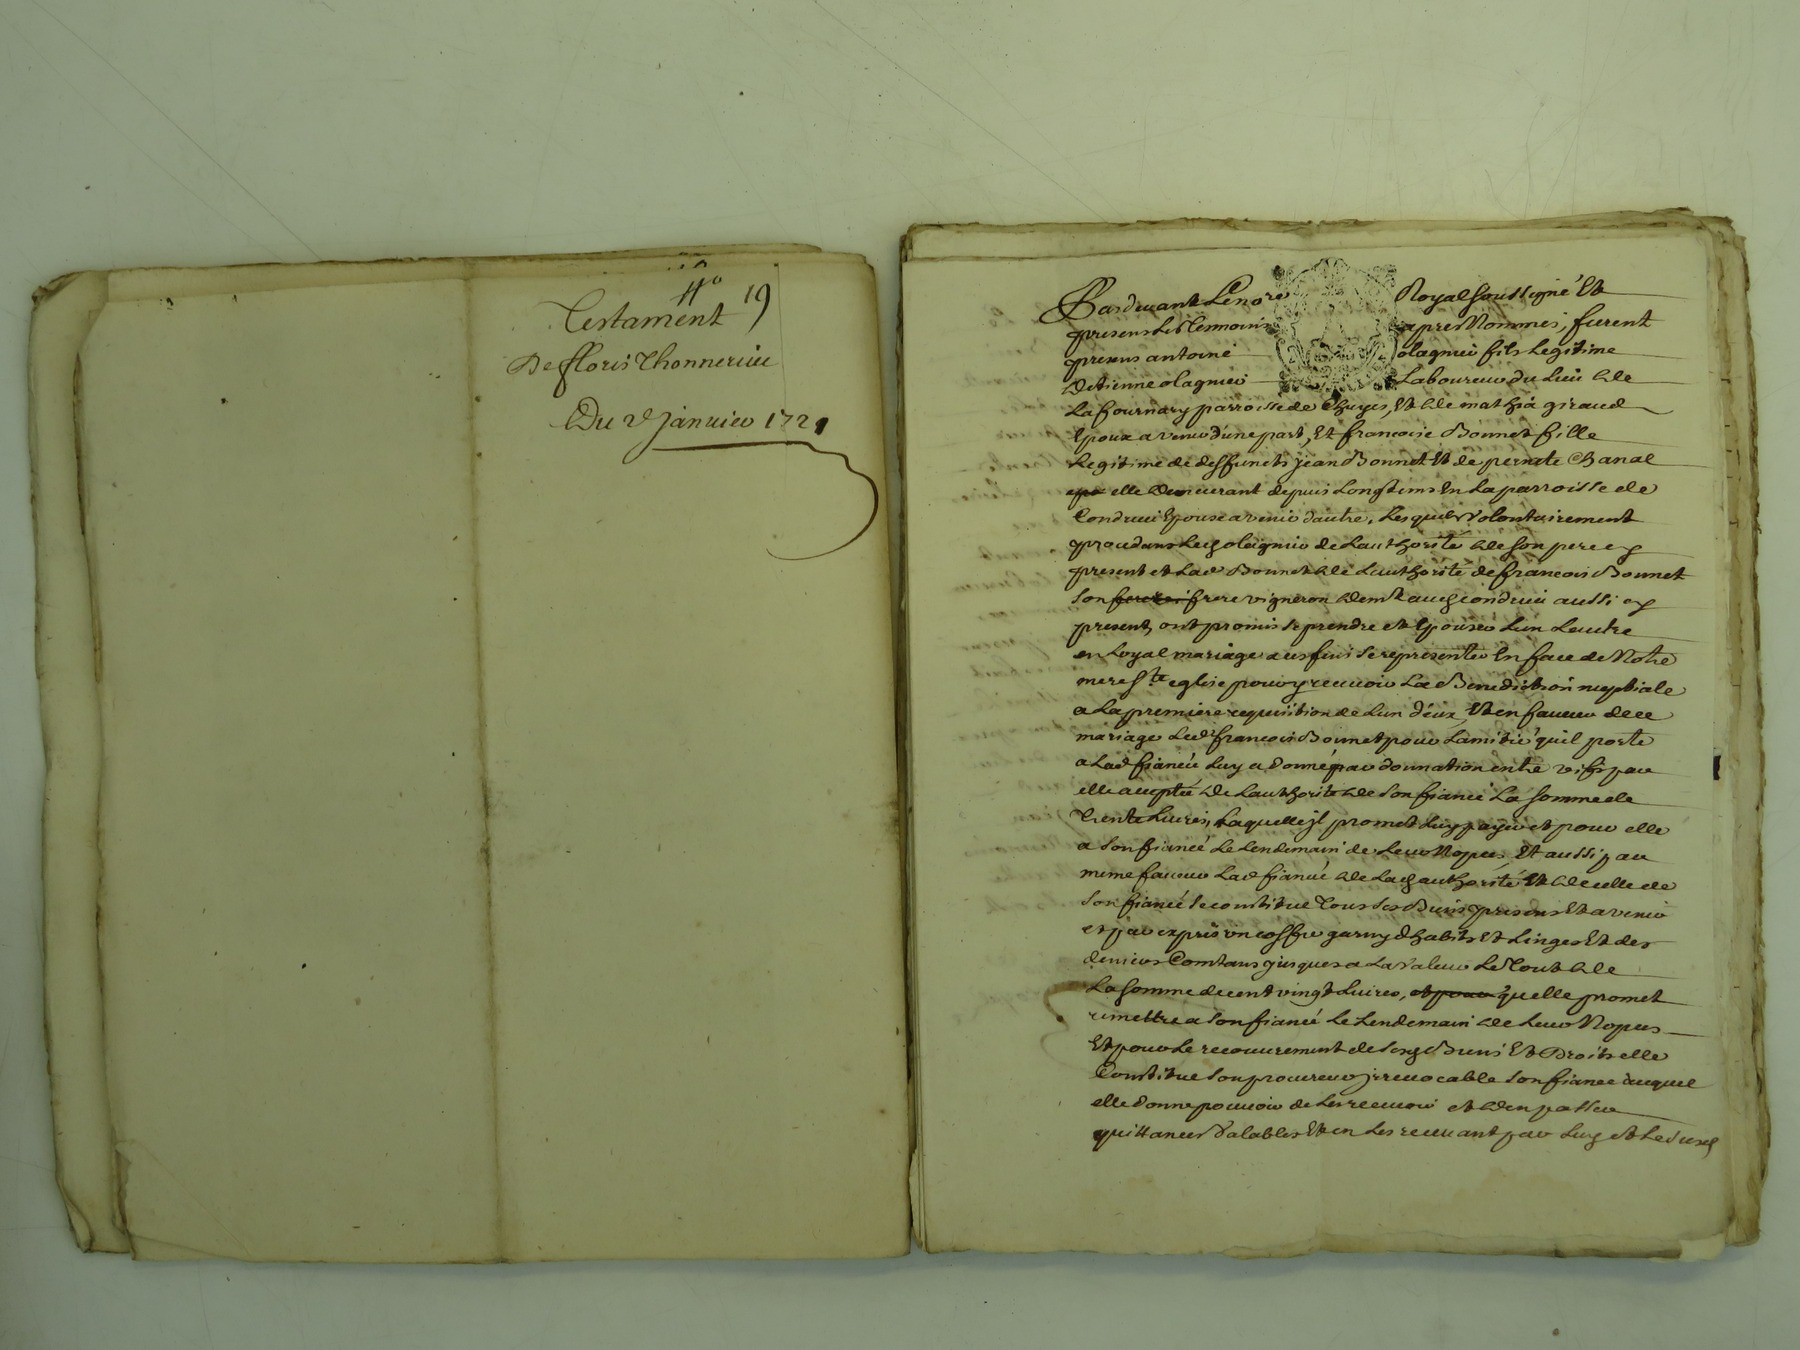 N° 19
Testament
De floris Thonnerieu
Du 2e Janvier 1721
Pardevant Le no re Royal soussigné Et
presens Les Temmoins apres Nommes, furent
presens antoine olagnier fils Legitime
detienne olagnier Laboureur du Lieu de
La fournary parroisse de Chuyes, Et de mathia giraud
Epoux a venir d'une part, Et francoise Bonnet fille
Legitime de deffuncts jean Bonnet Et de pernete Chanal
elle demeurant depuis Longtems En La parroisse de
Condrieu Epouse a venir dautre, Lesquels volontairement
procedans Led olagnier de Lauthorité de son pere cy
present et Lad Bonnet de Lauthorité de francois Bonnet
son frere vigneron demt aud condrieu aussi cy
present, ont promis se prendre et Epouser Lun Lautre
en Loyal mariage a ces fins se representer En face de Notre
mere Ste eglise pour y recevoir La Benediction nuptiale
a La premiere requisition de Lun d'eux, Et en faveur de ce
mariage Led francois Bonnet pour Lamitié quil porte
a Lad fiancée Luy a donné par donnation entre vifs par
elle acceptée de Lauthorité de son fiancé La somme de
Trente Livres, Laquelle jl promet Luy payer et pour elle
a son fiancé Le Lendemain de Leur Nopces, Et aussi par
meme faveur Lad fiancée de Lad authorité Et de celle de
son fiancé se constitue Tous ses Biens presens Et a venir
et par exprès vn coffre garny d'habits Et Linges Et des
deniers Comtans jusques a La valeur Le Tout de
La somme de cent vingt Livres, et pour quelle promet
remettre a son fiancé Le Lendemain de Leur Nopces
Et pour Le recouvrement de sesd Biens Et Droits elle
Constitue son procureur jrrevocable son fiancé auquel
elle donne pouvoir de Les recevoir et d'en passer
quittances valables Et en Les recevant par Luy